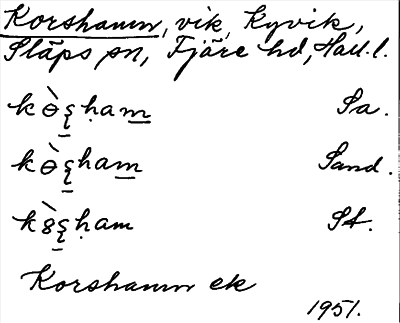 Korshamn, vik, Kyvik,
Släps sn, Fjäre hd, Hall. l.
Sa.
Sand.
St.
Korshamn ek
1951.